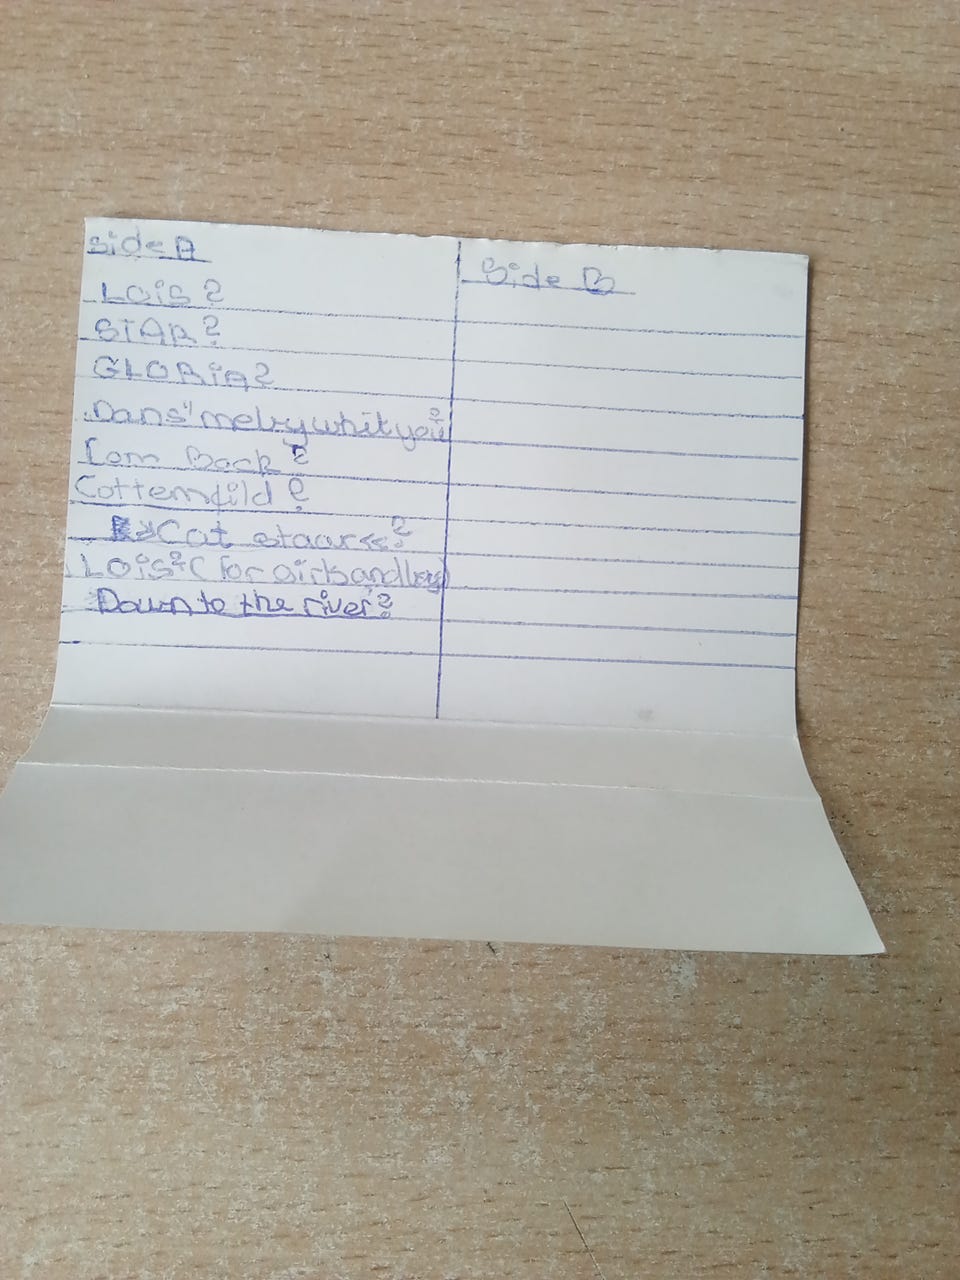 side A
Lois?
STAR?
GLORiA?
Dans" me by whit you?
Com Back?
Cottemfild?
Cat staarss?
Lois? (for airband
Down to the river?
Side B